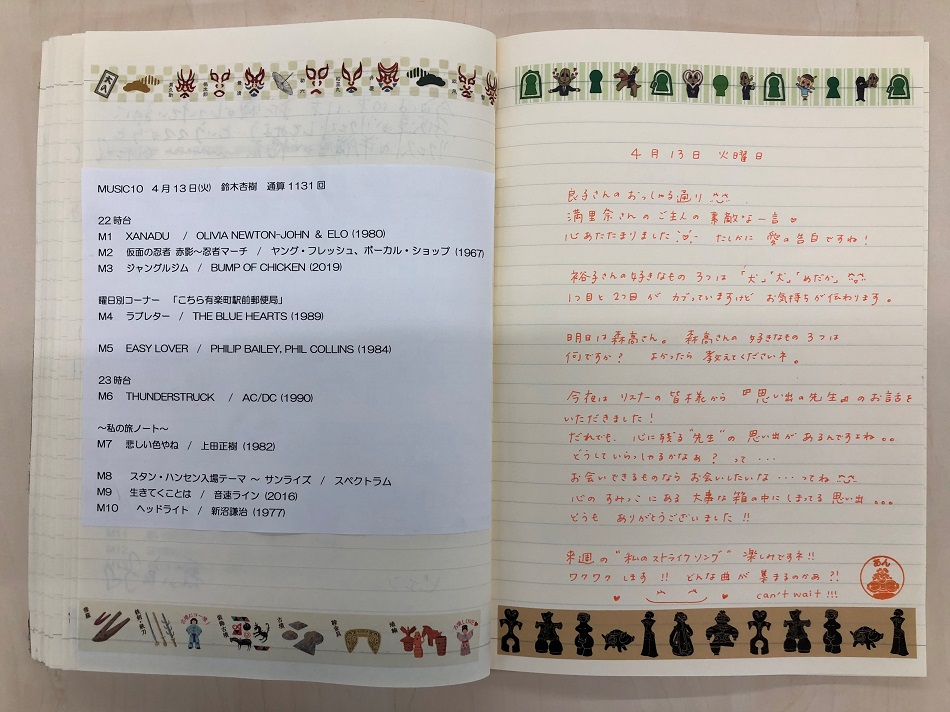 MUSIC10 4月13日(火) 鈴木杏樹 通算1131回
22時台
M1 XANADU / OLIVIA NEWTON-JOHN & ELO (1980)
M2 仮面の忍者 赤影～忍者マーチ / ヤング・フレッシュ、ボーカル・ショップ (1967)
M3 ジャングルジム / BUMP OF CHICKEN (2019)
曜日別コーナー 「こちら有楽町駅前郵便局」
M4 ラブレター / THE BLUE HEARTS (1989)
M5 EASY LOVER / PHILIP BAILEY, PHIL COLLINS (1984)
23時台
M6 THUNDERSTRUCK / AC/DC (1990)
～私の旅ノート～
M7 悲しい色やね / 上田正樹 (1982)
M8 スタン・ハンセン入場テーマ ～ サンライズ / スペクトラム
M9 生きてくことは / 音速ライン (2016)
M10 ヘッドライト / 新沼謙治 (1977)
4月13日 火曜日
良子さんのおっしゃる通り
満里奈さんのご主人の素敵な一言
心あたたまりました たしかに愛の告白ですね!
裕子さんの好きなもの3つは「犬」「犬」「めだか」
1つ目と2つ目がカブっていますけどお気持ちが伝わります。
明日は森高さん。森高さんの好きなもの3つは
何ですか? よかったら教えてくださいネ。
今夜はリスナーの皆様から『思い出の先生』のお話を
いただきました!
だれでも、心に残る"先生"の思い出があるんですよね。。
どうしていらっしゃるかなぁ? って・・・
お会いできるものならお会いしたいな・・・ってね
心のすみっこにある大事な箱の中にしまってる思い出。。。
どうもありがとうございました!!
来週の"私のストライクソング"楽しみですネ!!
ワクワクします!! どんな曲が集まるのかぁ?!
can't wait!!!
あん